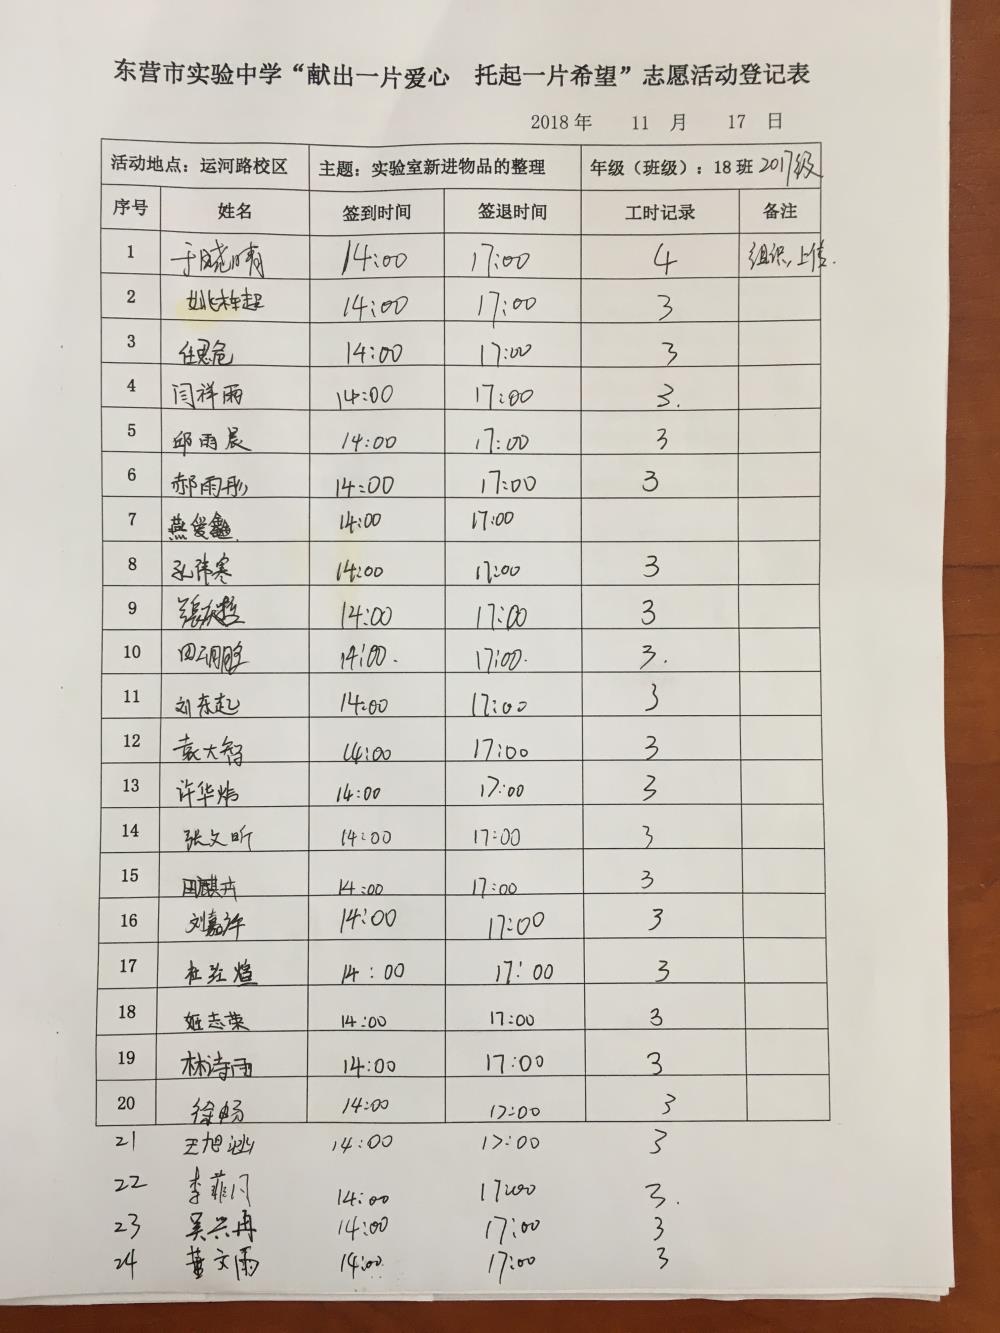 东营市实验中学“献出一片爱心 托起一片希望”志愿活动登记表
2018 年 11 月 17 日
活动地点：运河路校区 主题：实验室新进物品的整理 年级（班级）：18 班 2017级
序号 姓名 签到时间 签退时间 工时记录 备注
1 于晓晴 14:00 17:00 4 组织，上传.
2 14:00 17:00 3
3 14:00 17:00 3
4 闫祥雨 14:00 17:00 3.
5 邱雨晨 14:00 17:00 3
6 郝雨彤 14:00 17:00 3
7 燕爱鑫 14:00 17:00
8 孔伟寒 14:00 17:00 3
9 14:00 17:00 3
10 14:00. 17:00. 3.
11 刘东起 14:00 17:00 3
12 袁大智 14:00 17:00 3
13 许华炜 14:00 17:00 3
14 张文昕 14:00 17:00 3
15 田麒卉 14:00 17:00 3
16 刘嘉许 14:00 17:00 3
17 14:00 17:00 3
18 姬志荣 14:00 17:00 3
19 林诗雨 14:00 17:00 3
20 徐畅 14:00 17:00 3
21 王旭 14:00 17:00 3
22 李菲 14:00 17:00 3.
23 吴兴冉 14:00 17:00 3
24 黄文雨 14:00 17:00 3